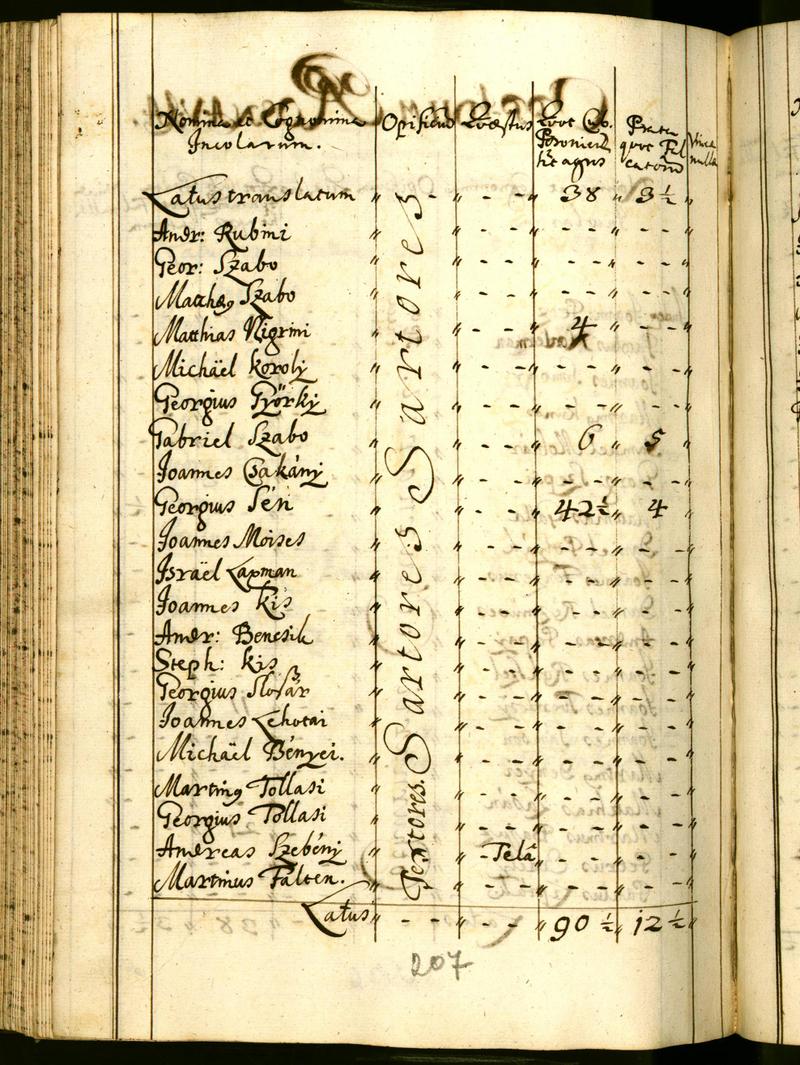 Nomina et Cognomina Incolarum. Opificium Quæstus Quot Cub. Posonien: sit agrus Prata quot Fal catorum Vinea nulla
Latus translatum " - " - - " 38 " 3½ "
Andr: Rubini
Geor: Szabo
Matthæg Szabo
Matthias Nigrini 4
Michäel Koroly
Georgius Györky
Gabriel Szabo 6 5
Joannes Csakány
Georgius Sén 42½ 4
Joannes Moises
Israël Lapman
Joannes Kis
Andr: Bencsik
Steph: Kis
Georgius Slosár
Joannes Lehotai
Michäel Bényei.
Marting Tollasi
Georgius Tollasi
Andreas Szebény - Telâ
Martinus Falten.
Sartores Sartores
Textores.
Latus " - - " - - " 90½ " 12½ "
207